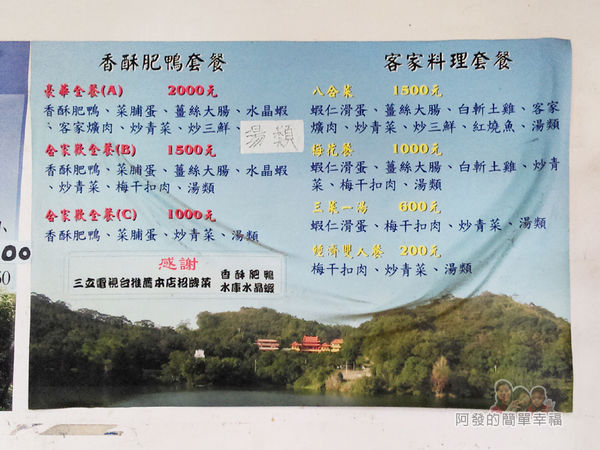 香酥肥鴨套餐
豪華全餐(A) 2000元
香酥肥鴨、菜脯蛋、薑絲大腸、水晶蝦
、客家爌肉、炒青菜、炒三鮮、湯類
合家歡全餐(B) 1500元
香酥肥鴨、菜脯蛋、薑絲大腸、水晶蝦
、炒青菜、梅干扣肉、湯類
合家歡全餐(C) 1000元
香酥肥鴨、菜脯蛋、炒青菜、湯類
感謝
三立電視台推薦本店招牌菜
香酥肥鴨
水庫水晶蝦
客家料理套餐
八合菜 1500元
蝦仁滑蛋、薑絲大腸、白斬土雞、客家
爌肉、炒青菜、炒三鮮、紅燒魚、湯類
1000元
蝦仁滑蛋、薑絲大腸、白斬土雞、炒青
菜、梅干扣肉、湯類
三菜一湯 600元
蝦仁滑蛋、梅干扣肉、炒青菜、湯類
經濟雙人餐 200元
梅干扣肉、炒青菜、湯類
00
50
阿發的簡單幸福